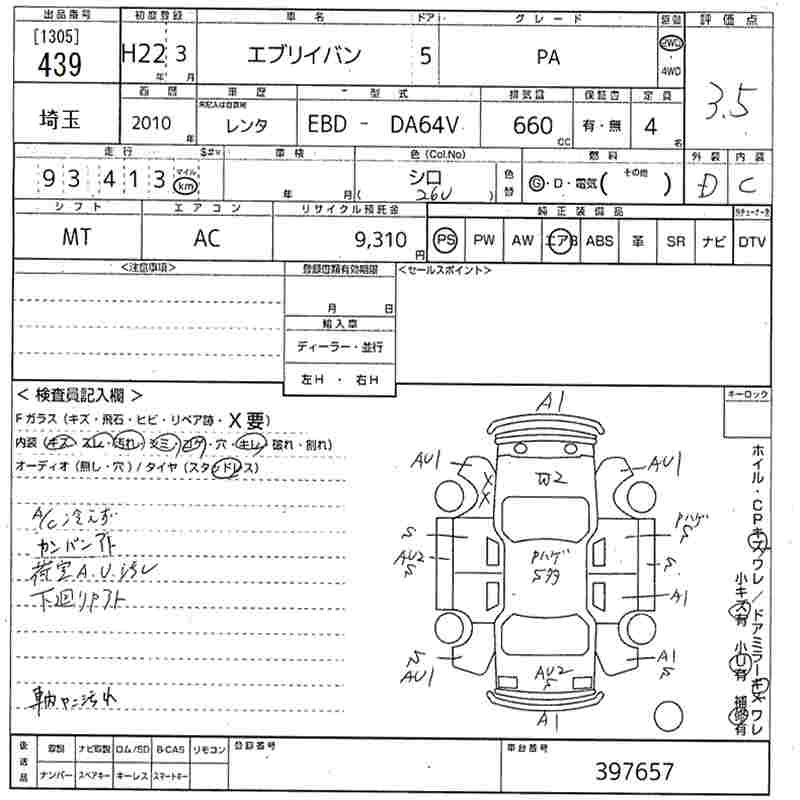 出品番号 初度登録 車名 ドア グレード 駆動 評価点
[1305]
439 H22 3 エブリイバン 5 PA 2WD・4WD 3.5
年 月
西暦 車歴 型式 排気量 保証書 定員
埼玉 2010 年 レンタ EBD - DA64V 660 cc 有・無 4 名
走行 車検 色(Col.No) 燃料 外装 内装
93413 マイル km 年 月 シロ ( 26U ) 色替 G・D・電気( その他 ) D C
シフト エアコン リサイクル預託金 純正装備品
MT AC 9,310 円 PS PW AW エアB ABS 革 SR ナビ DTV
<注意事項> 登録書類有効期限 <セールスポイント>
月 日
輸入車
ディーラー・並行
左H ・ 右H
< 検査員記入欄 > キーロック
Fガラス(キズ・飛石・ヒビ・リペア跡・X要)
内装(キズ・スレ・汚れ・シミ・コゲ・穴・キレ・破れ・割れ)
オーディオ(無し・穴)/タイヤ(スタッドレス)
A/C冷えず
カンバン跡
荷室A.U.汚レ
下廻リサビ
A1
AU1 W2 AU1
S Pハゲ S
AU2 S Pハゲ S多々 S
A1
S AU1 AU2 S A1 S
A1
ホイル・CPキズワレ/ドアミラーキズワレ
小キズ有 小U有 補修有
後送品 取説 ナビ取説 ロム/SD B-CAS リモコン 登録番号 車台番号
ナンバー スペアキー キーレス スマートキー 397657